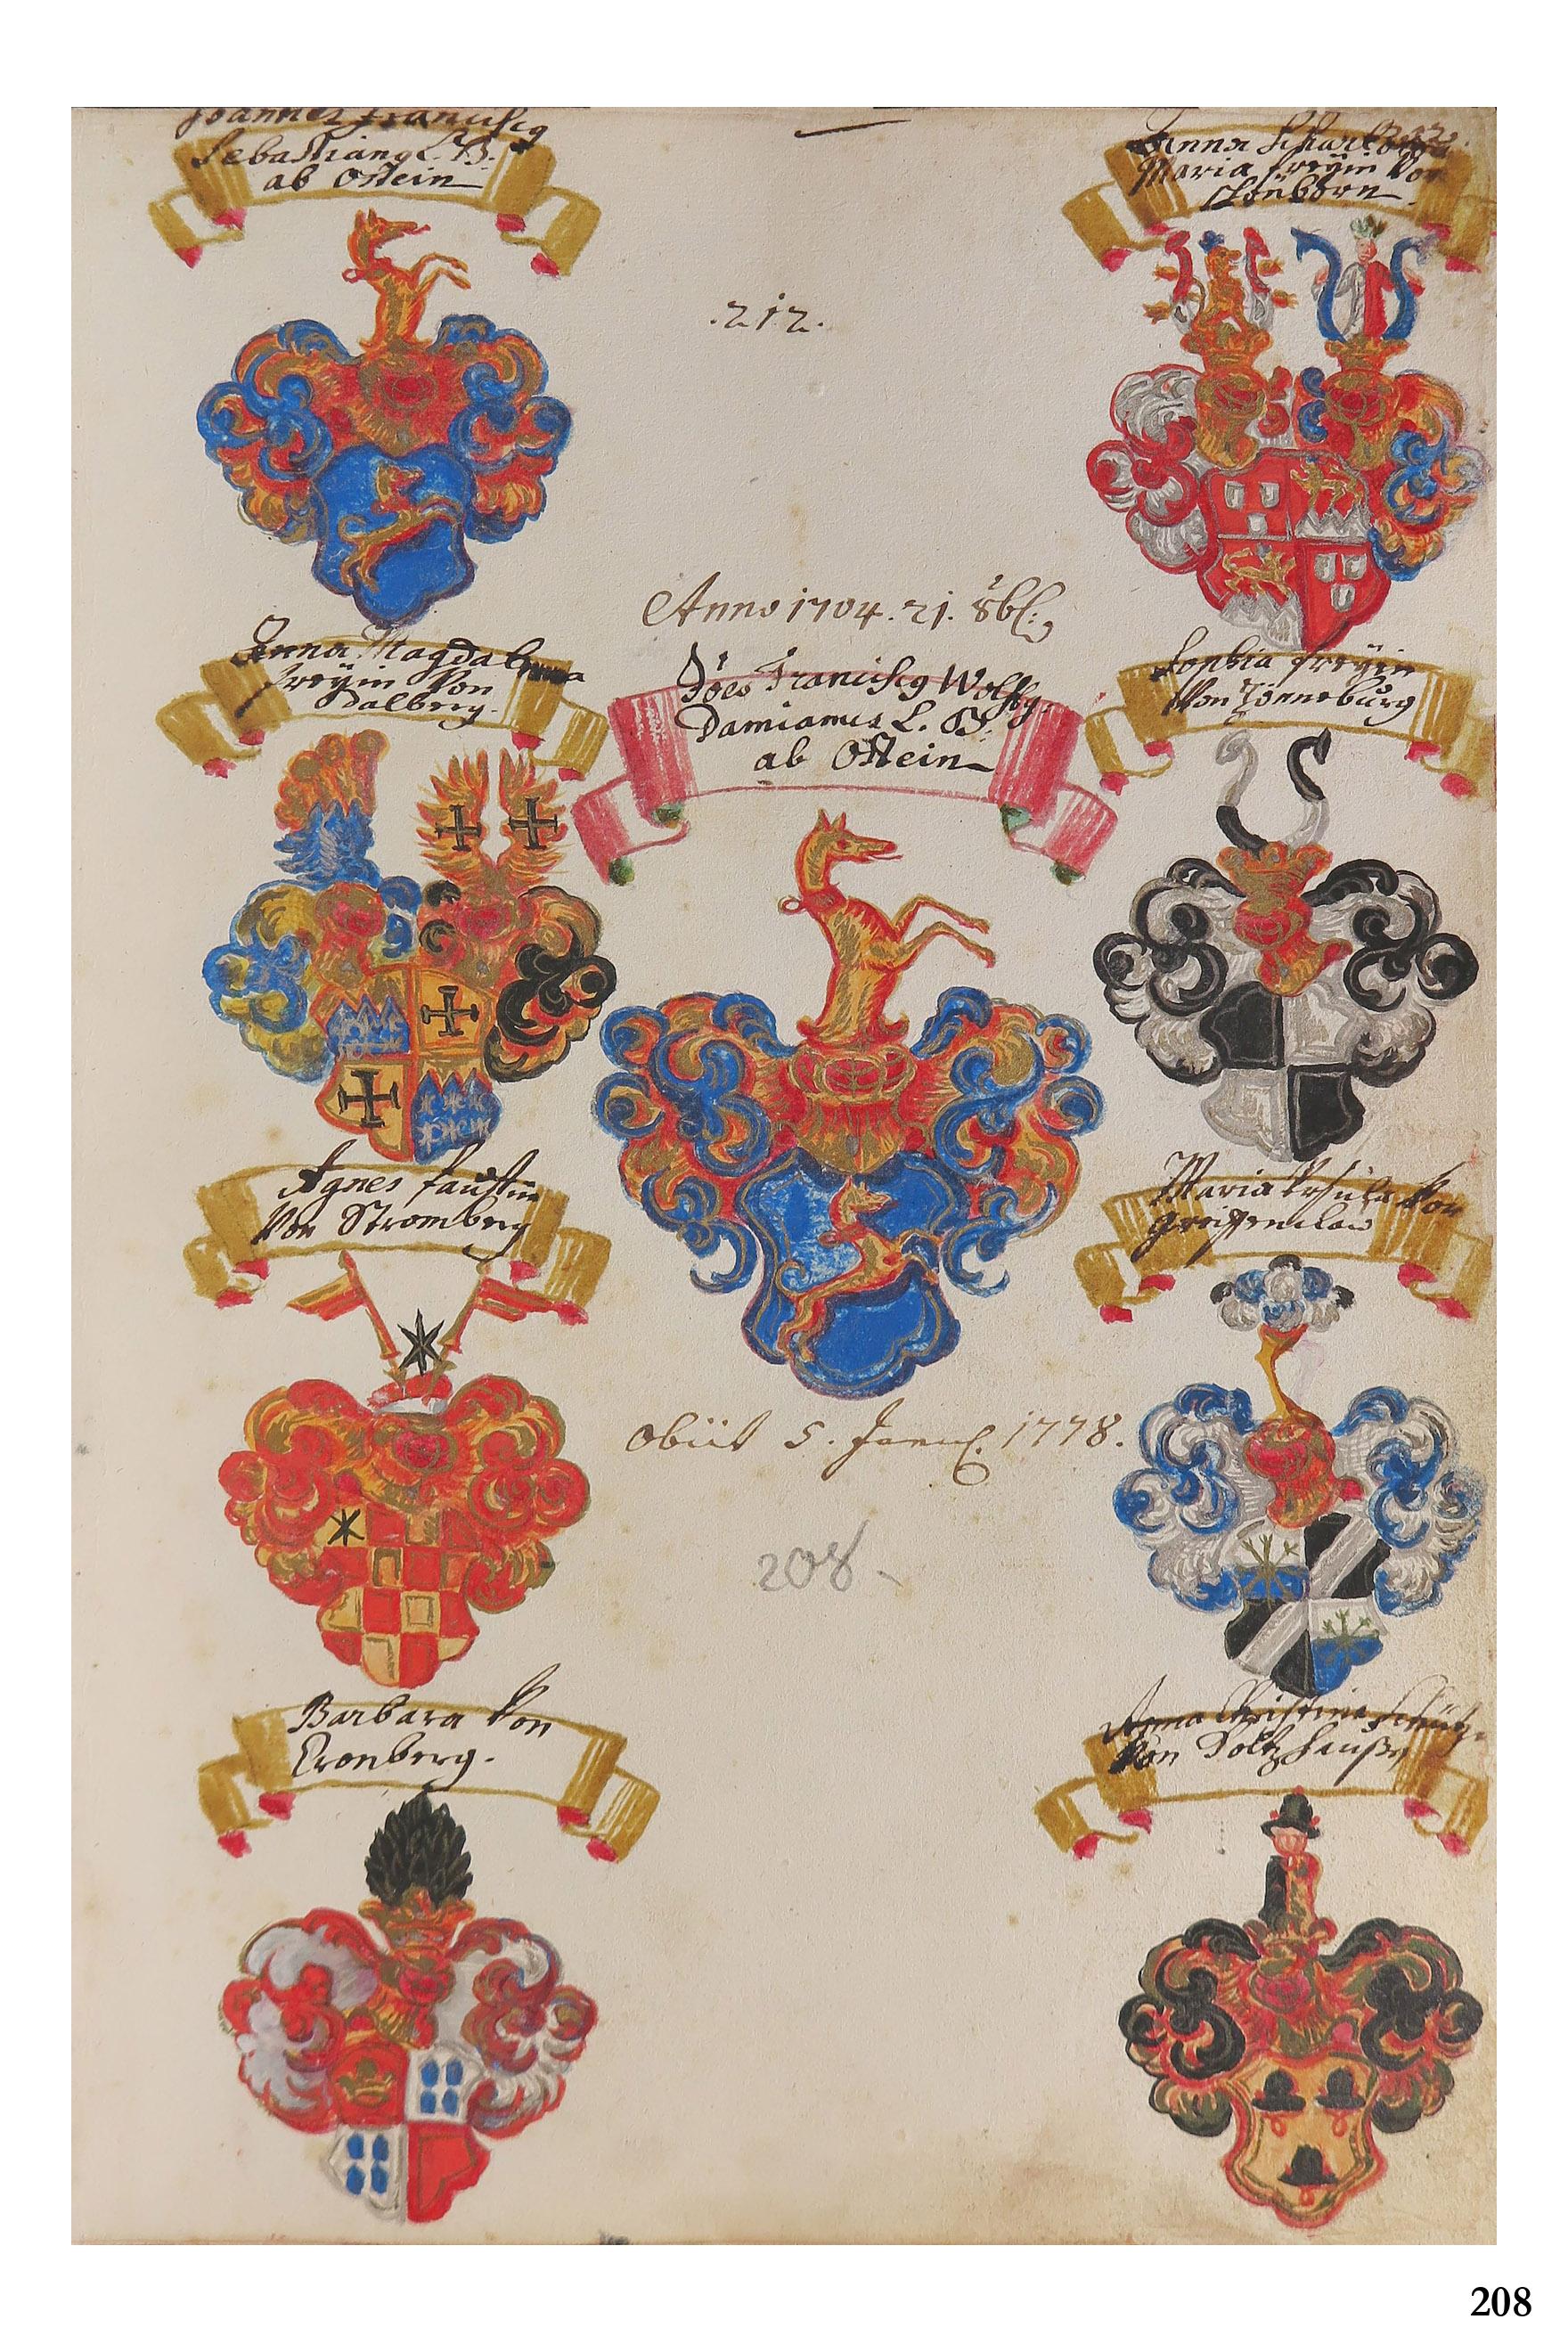 Joannes Francisc9
Sebastian9 L. B.
ab Ostein
Anna Scharlotta
Maria freÿin Von
schönborn
.212.
Anno 1704. 21. 8b
Anna Magdalena
freÿin Von
Dalberg.
Jöes Francisc9 Wolffg.
Damianus L. B.
ab Ostein
Sophia freÿin
Von
Agnes faustin
Von Stromberg
Maria Ursula Von
greiffenclaw
obiit 5. 1778.
208
Barbara Von
Cronberg.
Anna Christina Schütz
Von Holtzhaußen
208